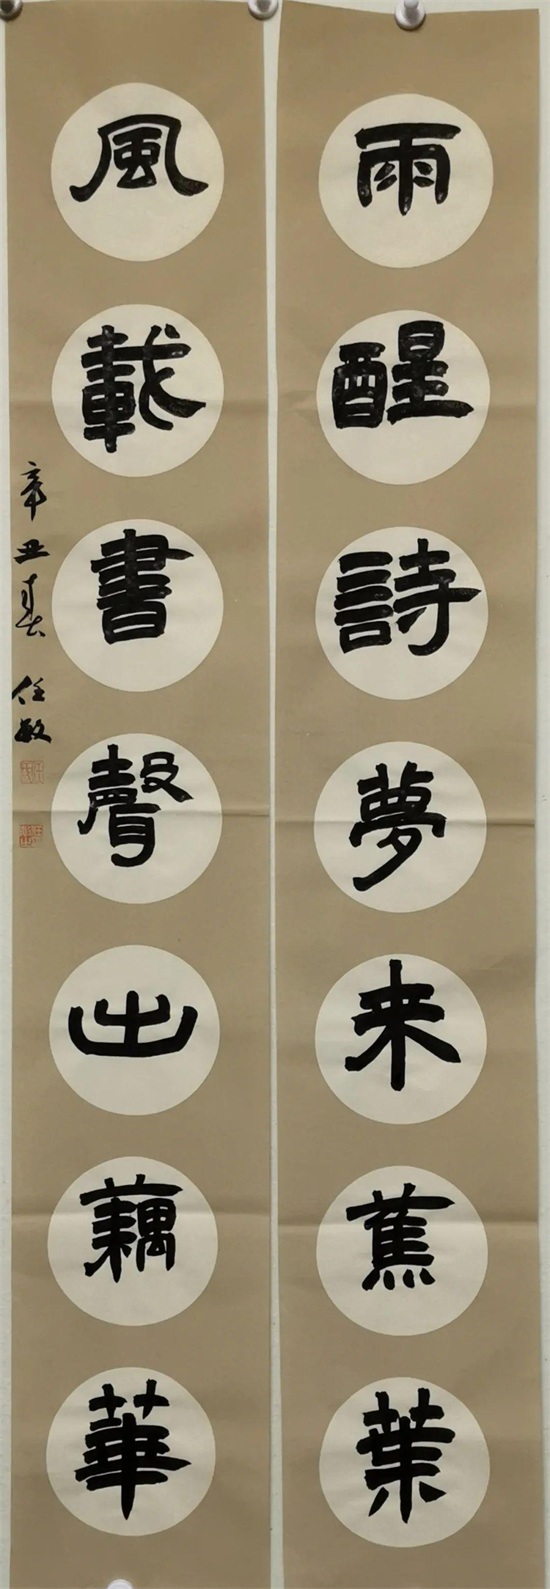 雨醒詩夢来蕉葉
風載書聲出藕華
辛丑春 任敏